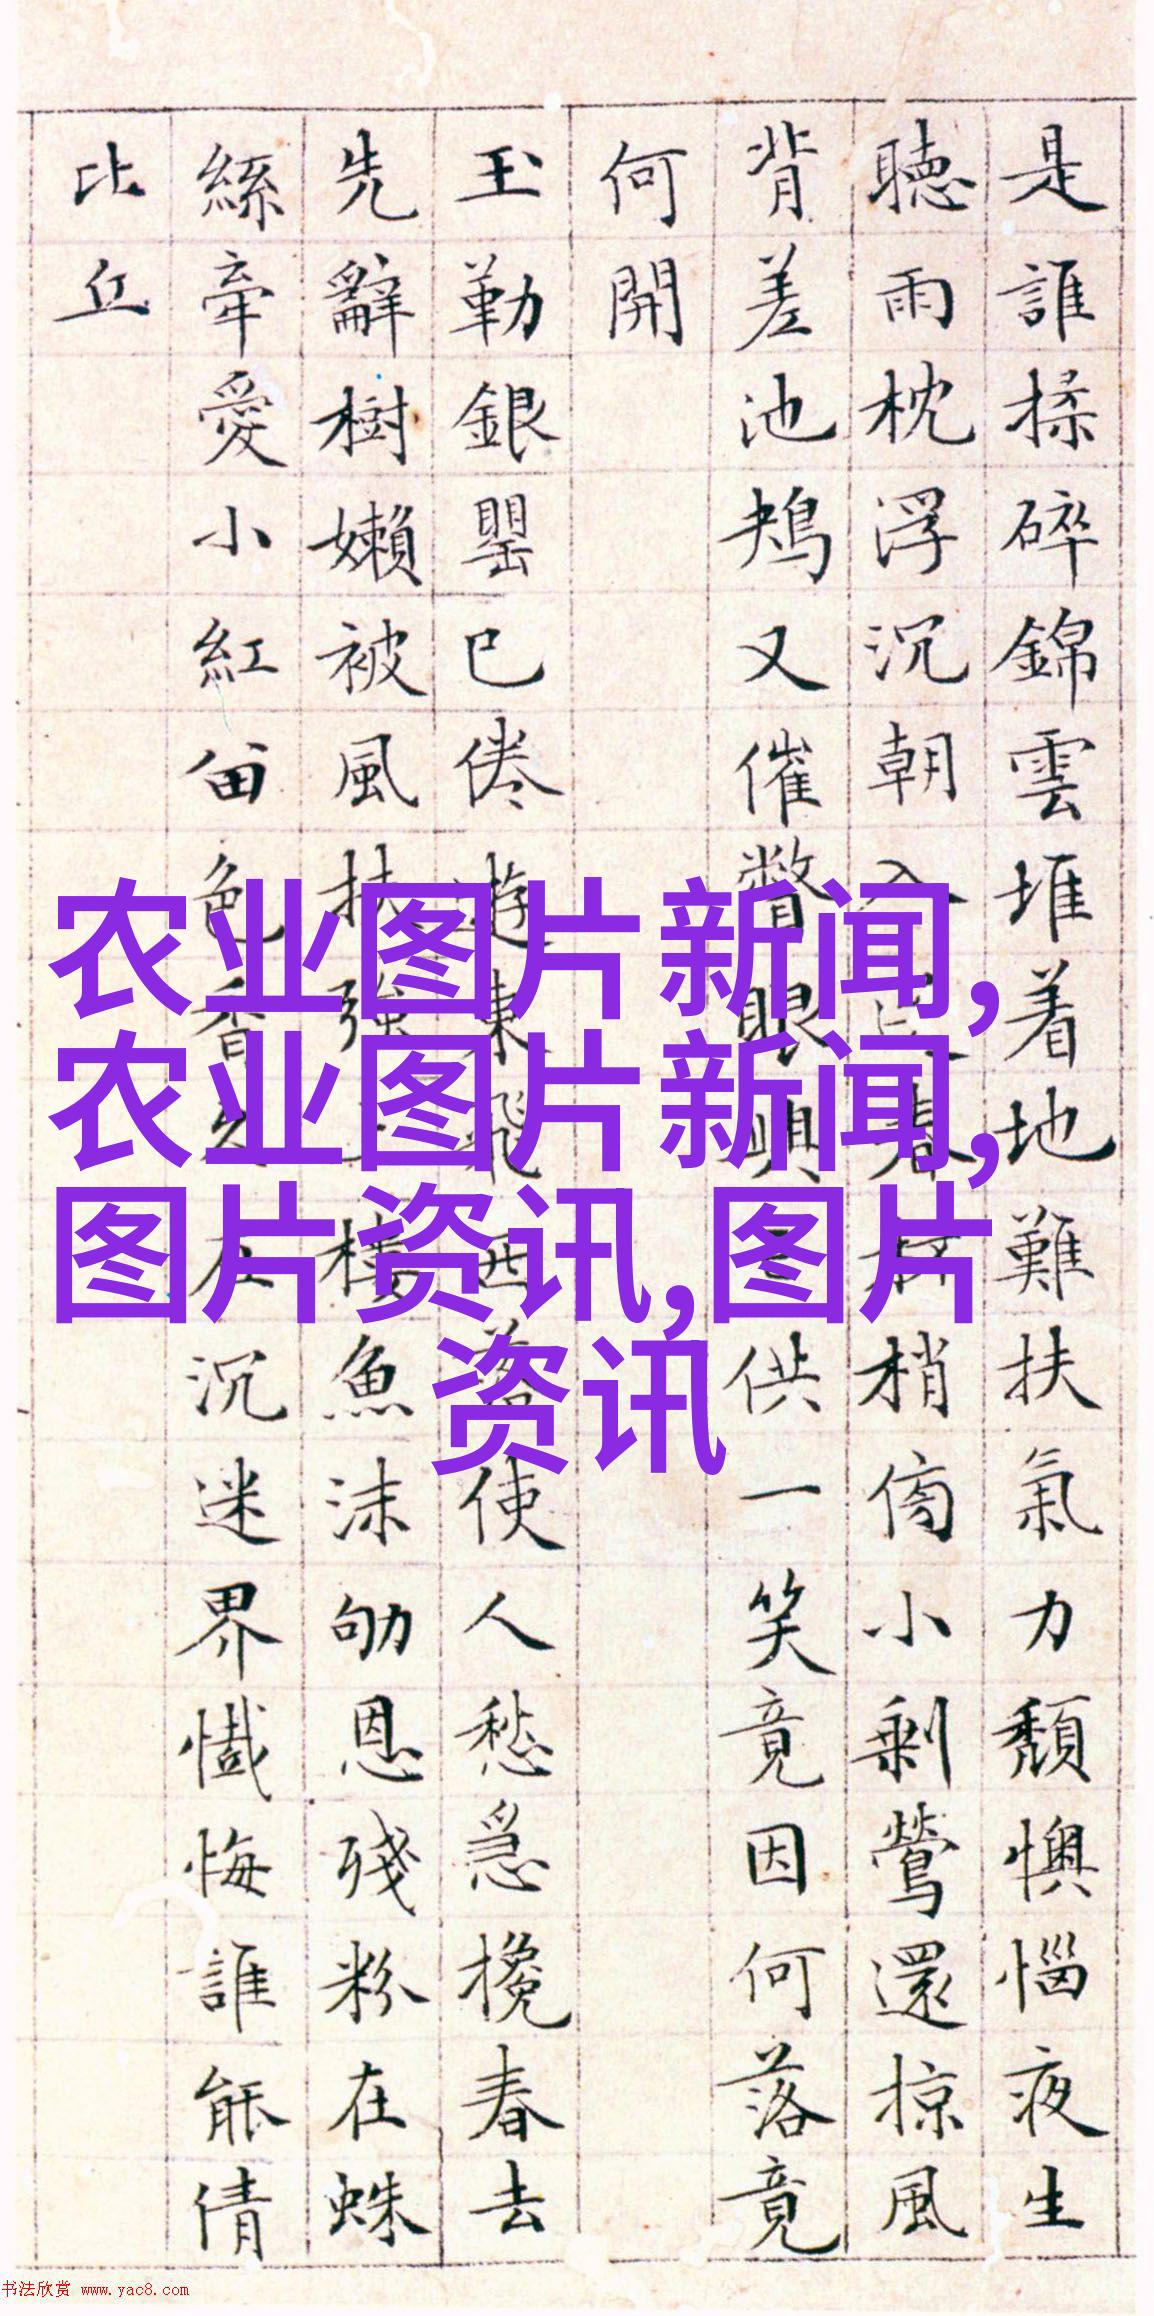 是誰揉碎錦雲堆着地難扶氣力頹懊惱夜生
聴雨枕浮沉朝入春梢小剩鶯還掠風
背差池鴂又催瞥眼供一笑竟因何落竟
何開
玉勒銀罌已倦遊東飛西落使人愁急攙春去
先辭樹嬾被風扶強樓魚沫恩殘粉在蛛
絲牽愛小紅留色香久在沉迷界懺悔誰能倩
比丘
农业图片新闻,
农业图片新闻,
图片资讯,图片
资讯
书法欣赏 www.yac8.com